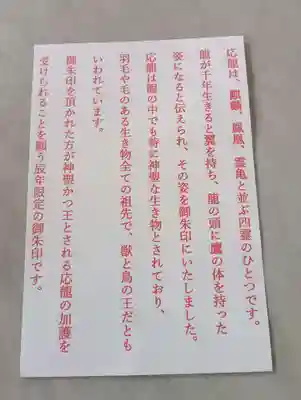 応龍は、麒麟、鳳凰、霊亀と並ぶ四霊のひとつです。
龍が千年生きると翼を持ち、龍の頭に鷹の体を持った
姿になると伝えられ、その姿を御朱印にいたしました。
応龍は龍の中でも特に神聖な生き物とされており、
羽毛や毛のある生き物全ての祖先で、獣と鳥の王だとも
いわれています。
御朱印を頂かれた方が神聖かつ王とされる応龍の加護を
受けられることを願う辰年限定の御朱印です。